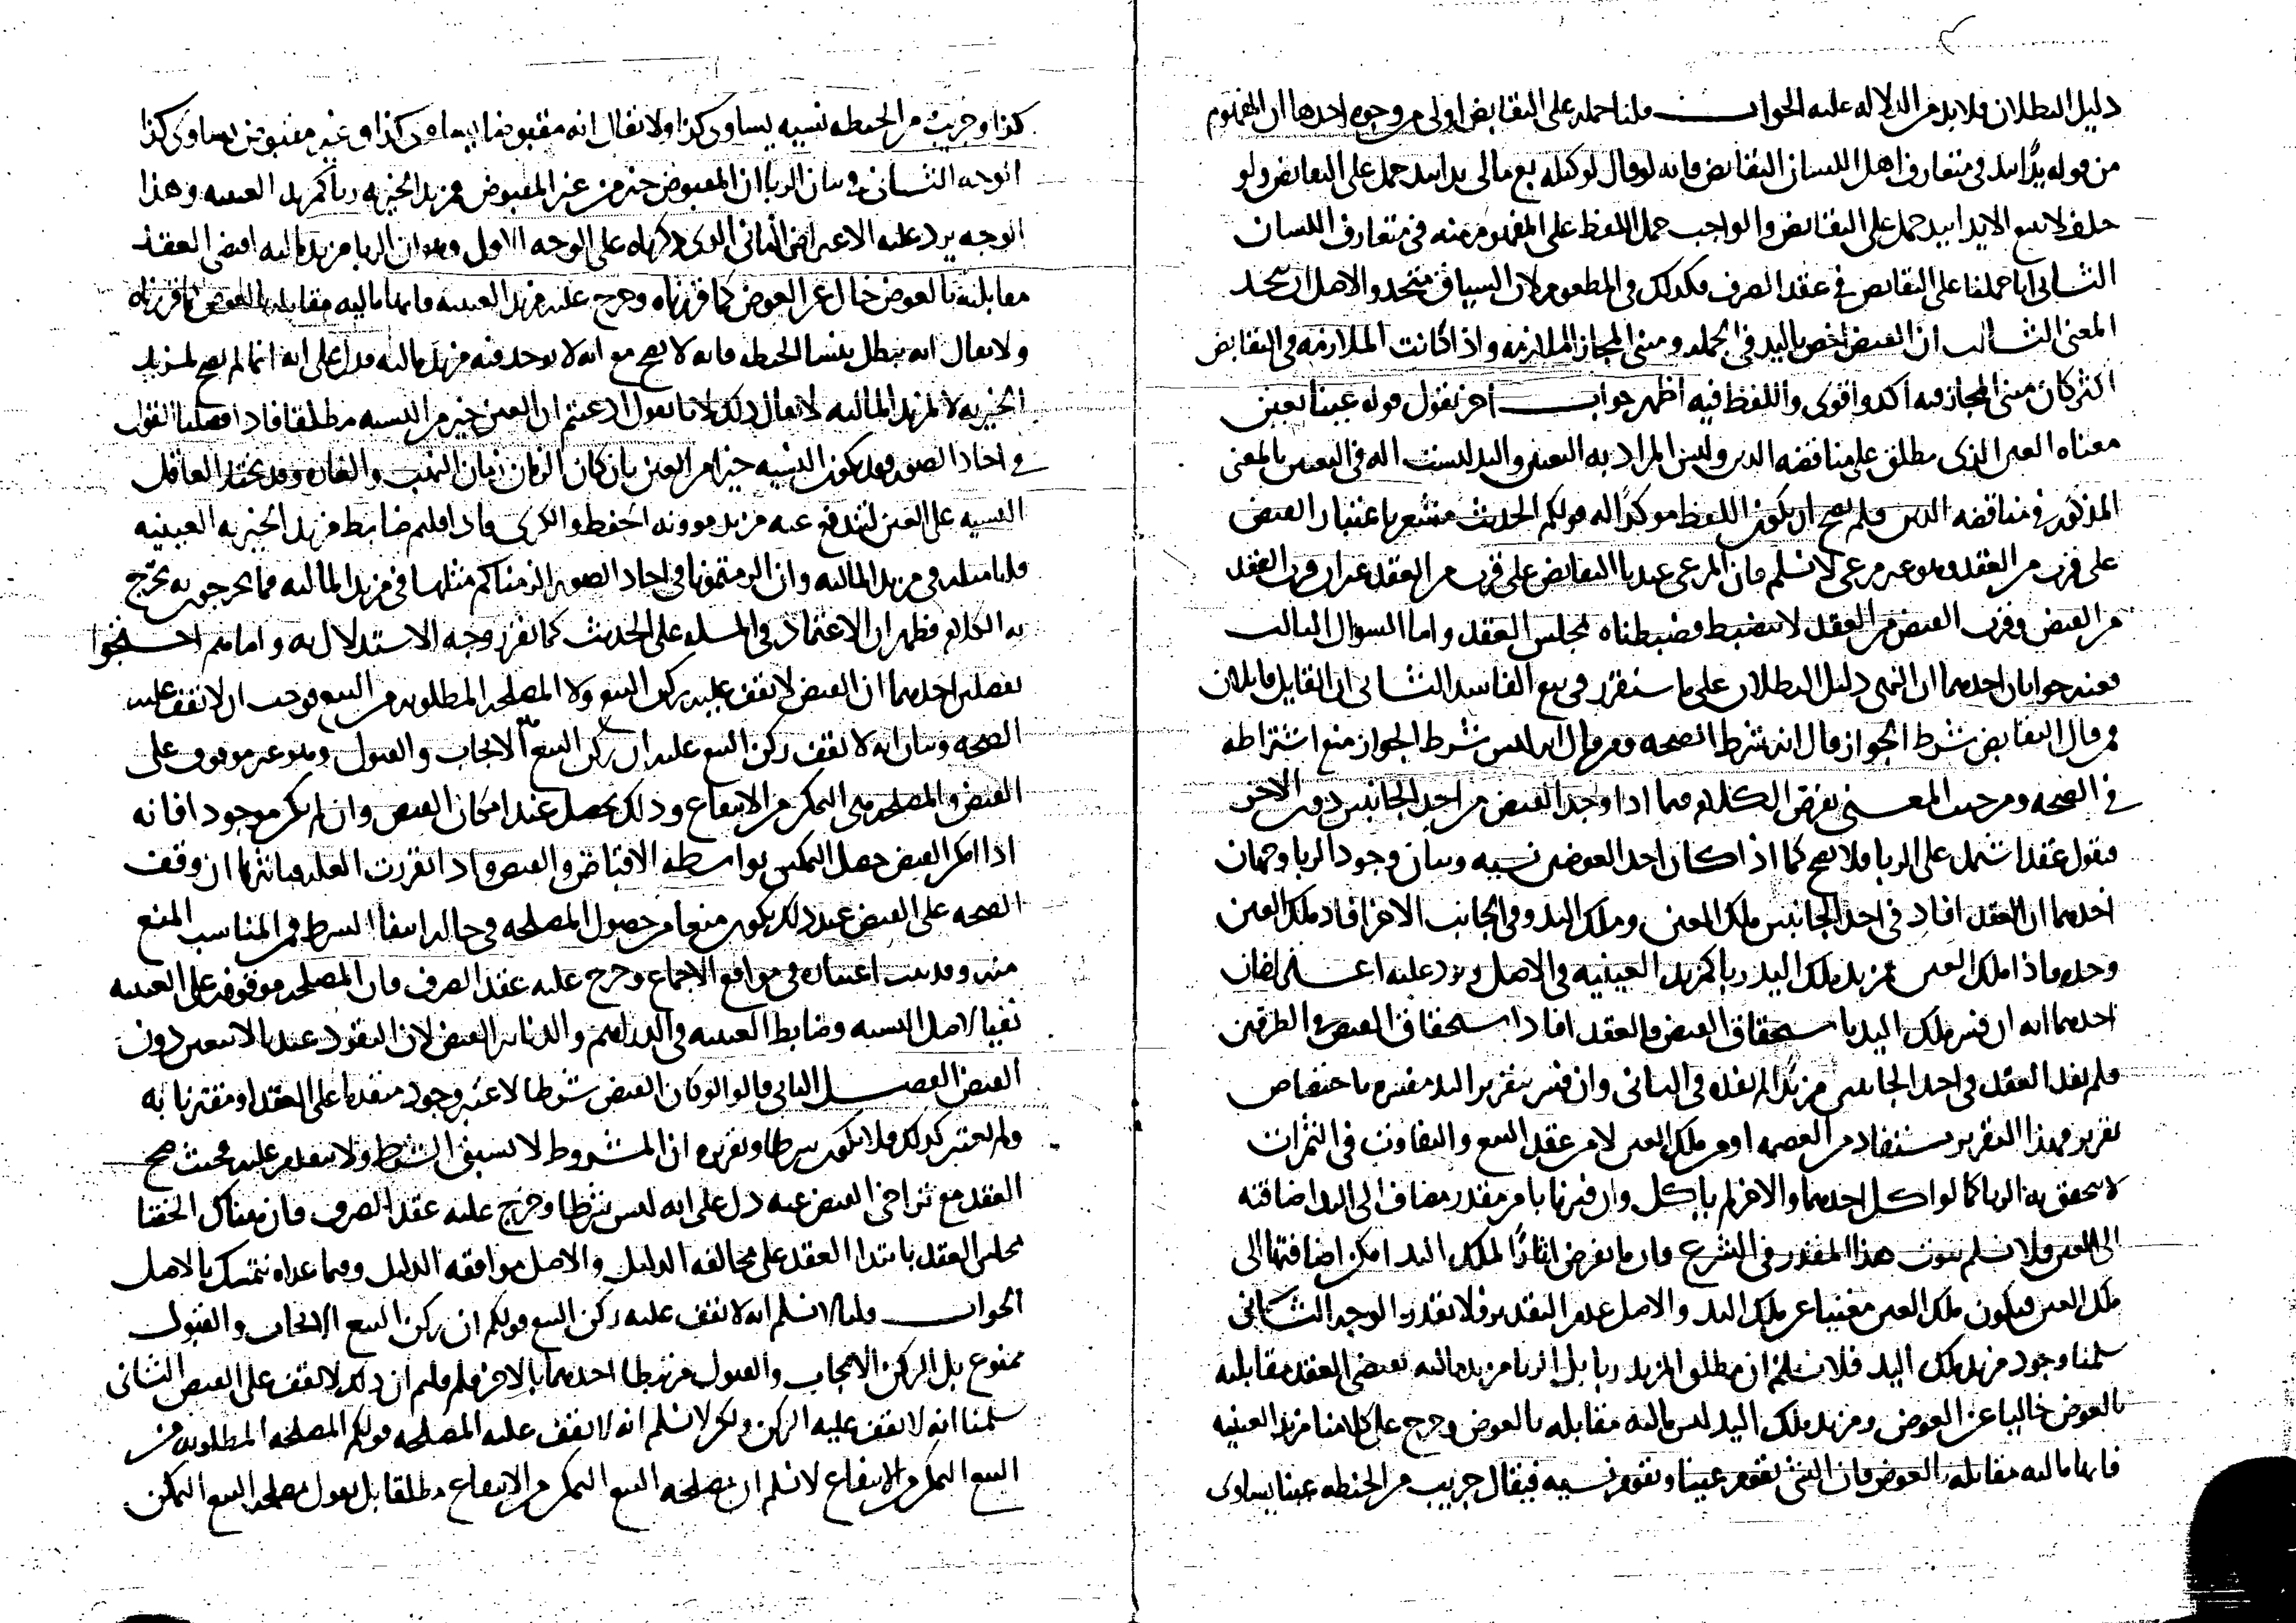 دليل البطلان فلا بد من الدلالة عليه الجواب قلنا حمله على التقابض اولى من وجوه احدها ان المفهوم
من قوله يدا بيد في متعارف اهل اللسان التقابض فانه لو قال لوكيله بع مالي يدا بيد حمل على التقابض ولو
حلف لا يبيع الا يدا بيد حمل على التقابض والواجب حمل اللفظ على المفهوم منه في متعارف اللسان
الثاني انا حملنا على التقابض في عقد الصرف فكذلك في المطعوم لان السياق متحد والاصل ان يتحد
المعنى الثالث ان القبض اخص باليد في الجملة ومبنى المجاز الملازمة واذا كانت الملازمة في التقابض
اكثر كان مبنى المجاز فيه اكد واقوى واللفظ فيه اظهر جواب اخر نقول قوله عينا بعين
معناه العين الذي يطلق على مناقضه الدين وليس المراد به التعين واليد ليست اله في التعيين بالمعنى
المذكور في مناقضه الدين فلم يصح ان يكون اللفظ موكدا له قولكم الحديث مشعر باعتبار القبض
على قرب من العقد وهو غير مرعي لا نسلم فان المرعي عندنا التقابض على قرب من العقد غير ان قرب العقد
من القبض وقرب القبض من العقد لا ينضبط فضبطناه بمجلس العقد واما السوال الثالث
فعنه جوابان احدهما ان النهي دليل البطلان على ما سنقرر في بيع الفاسد الثاني ان القايل قايلان
فمن قال التقابض شرط الجواز قال انه شرط الصحة ومن قال انه ليس شرط الجواز منع اشتراطه
في الصحه ومن حيث المعنى نفرض الكلام فيما اذا وجد القبض من احد الجانبين دون الاخر
فنقول عقد اشتمل على الربا فلا يصح كما اذا كان احد العوضين نسيه وبيان وجود الربا وجهان
احدهما ان العقد افاد في احد الجانبين ملك العين وملك اليد وفي الجانب الاخر افاد ملك العين
وحده فاذا ملك العين فمزيد ملك اليد ربا كمزيد العينيه في الاصل ويرد عليه اعتراضان
احدهما انه ان فسر ملك اليد باستحقاق القبض فالعقد افاد استحقاق القبض في الطرفين
فلم يفد العقد في احد الجانبين مزيدا لم يفده في الثاني وان فسر بتقرير اليد مفسره باختصاص
تقرير فهذا التقرير مستفاد من العصمه او من ملك العين لا من عقد البيع والتفاوت في الثمرات
لا يتحقق به الربا كما لو اكل احدهما والاخر لم ياكل وان فسر تاما من مقدر مضاف الى اليد اضافته
الى العين فلا نسلم ثبوت هذا المقدر في الشرع فان ما نفرض اثارا لملك اليد امكن اضافتها الى
ملك العين فيكون ملك العين مغنيا عن ملك اليد والاصل عدم التقدير فلا نقدره الوجه الثاني
سلمنا وجود مزيد ملك اليد فلا نسلم ان مطلق المزيد ربا بل الربا مزيد ماليه تقتضي العقد مقابلته
بالعوض خاليا عن العوض ومزيد ملك اليد ليس ماليه مقابله بالعوض وخرج على كلامنا مزيد العينيه
فانها ماليه مقابله بالعوض فان الشي يقوم عينا ويقوم نسيه فيقال جريب من الحنطه عينا يساوي
كذا وجريب من الحنطه نسيه يساوي كذا ولا يقال انه مقبوضا يساوي كذا وغير مقبوض يساوي كذا
الوجه الثاني في بيان الربا ان المقبوض خير من غير المقبوض فمزيد الخيريه ربا كمزيد العينيه وهذا
الوجه يرد عليه الاعتراض الثاني الذي ذكرناه على الوجه الاول وهو ان الربا مزيد ماليه اقتضى العقد
مقابلته بالعوض خال عن العوض كما قررناه وخرج عليه مزيد العينيه فانها ماليه مقابله بالعوض كما قررناه
ولا يقال انه يبطل بنسا الحنطه فانه لا يصح مع انه لا يوجد فيه مزيد ماليه فدل على انه انما لم يصح لمزيد
الخيريه لا لمزيد الماليه لا يقال ذلك لانا نقول ادعيتم ان العين خير من النسيه مطلقا فاذا فصلنا القول
في احاد الصور فقد يكون النسيه خيرا من العين بان كان الزمان زمان النهب والغاره وقد يختار العاقل
النسيه على العين لتندفع عنه مزيد موونه الحفظ والكرى فاذا قلتم ضابط مزيد الخيريه العينيه
قلنا مثله في مزيد الماليه وان الزمتمونا في احاد الصور الزمناكم مثلها في مزيد الماليه فما تخرجون به نخرج
به الكلام فظهر ان الاعتماد في المسله على الحديث كما تقرر وجه الاستدلال به واما هم احتجوا
بفصلين احدهما ان القبض لا يقف عليه ركن البيع ولا المصلحه المطلوبه من البيع فوجب ان لا تقف عليه
الصحه وبيان انه لا يقف ركن البيع عليه ان ركن البيع الايجاب والقبول وهو غير موقوف على
القبض والمصلحه هي التمكن من الانتفاع وذلك يحصل عند امكان القبض وان لم يكن موجودا فانه
اذا امكن القبض حصل التمكين بواسطه الاقباض والقبض واذا تقررت العله فتاثيرها ان وقف
الصحه على القبض عند ذلك يكون منعا من حصول المصلحه في حاله انتفا الشرط فمن المناسب المنع
منه وقد ثبت اعتباره في مواقع الاجماع وخرج عليه عقد الصرف فان المصلحه موقوفه على العينيه
نفيا لاصل النسيه وضابط العينيه في الدراهم والدنانير القبض لان النقود عندنا لا تتعين دون
القبض الفصل الثاني قالوا لو كان القبض شرطا لاعتبر وجوده متقدما على العقد او مقترنا به
ولم يعتبر كذلك فلا يكون شرطا وتقريره ان المشروط لا يسبق الشرط ولا يتقدم عليه فحيث صح
العقد مع تراخي القبض عنه دل على انه ليس شرطا وخرج عليه عقد الصرف فان هناك الحقنا
مجلس العقد بابتدا العقد على مخالفه الدليل والاصل موافقه الدليل وفيما عداه نتمسك بالاصل
الجواب قلنا لا نسلم انه لا تقف عليه ركن البيع قولكم ان ركن البيع الايجاب والقبول
ممنوع بل الركن الايجاب والقبول مرتبطا احدهما بالاخر فلم قلتم ان ذلك لا يقف على القبض الثاني
سلمنا انه لا يقف عليه الركن ولكن لا نسلم انه لا تقف عليه المصلحه قولكم المصلحه المطلوبه من
البيع التمكن من الانتفاع لا نسلم ان مصلحه البيع التمكن من الانتفاع مطلقا بل نقول مصلحه البيع التمكن